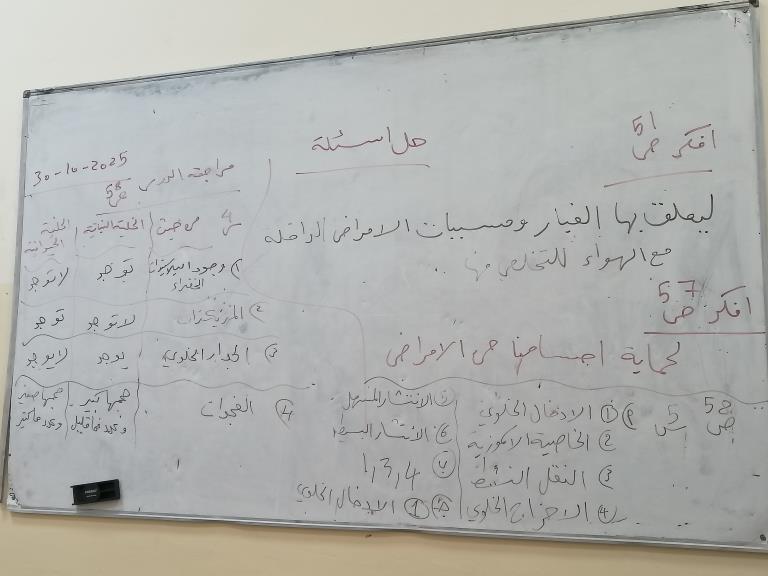 حل اسئلة
افكر ص 51
ليعلق بها الغبار ومسببات الامراض الداخلة
مع الهواء للتخلص منها
افكر ص 57
لحماية اجسامنا من الامراض
ص 58 س 5
أ ① الادخال الخلوي
② الخاصية الاسموزية
③ النقل النشط
④ الاخراج الخلوي
⑤ الانتشار المسهل
⑥ الانتشار البسيط
⑦ 1,3,4
ب ① الادخال الخلوي
30-10-2025
مراجعة الدرس ص 58
س 4 من حيث الخلية النباتية الخلية الحيوانية
① وجود البلاستيدات الخضراء توجد لا توجد
② المريكزات لا توجد توجد
③ الجدار الخلوي يوجد لا يوجد
④ الفجوات حجمها كبير وعددها قليل حجمها صغير وعددها كثير